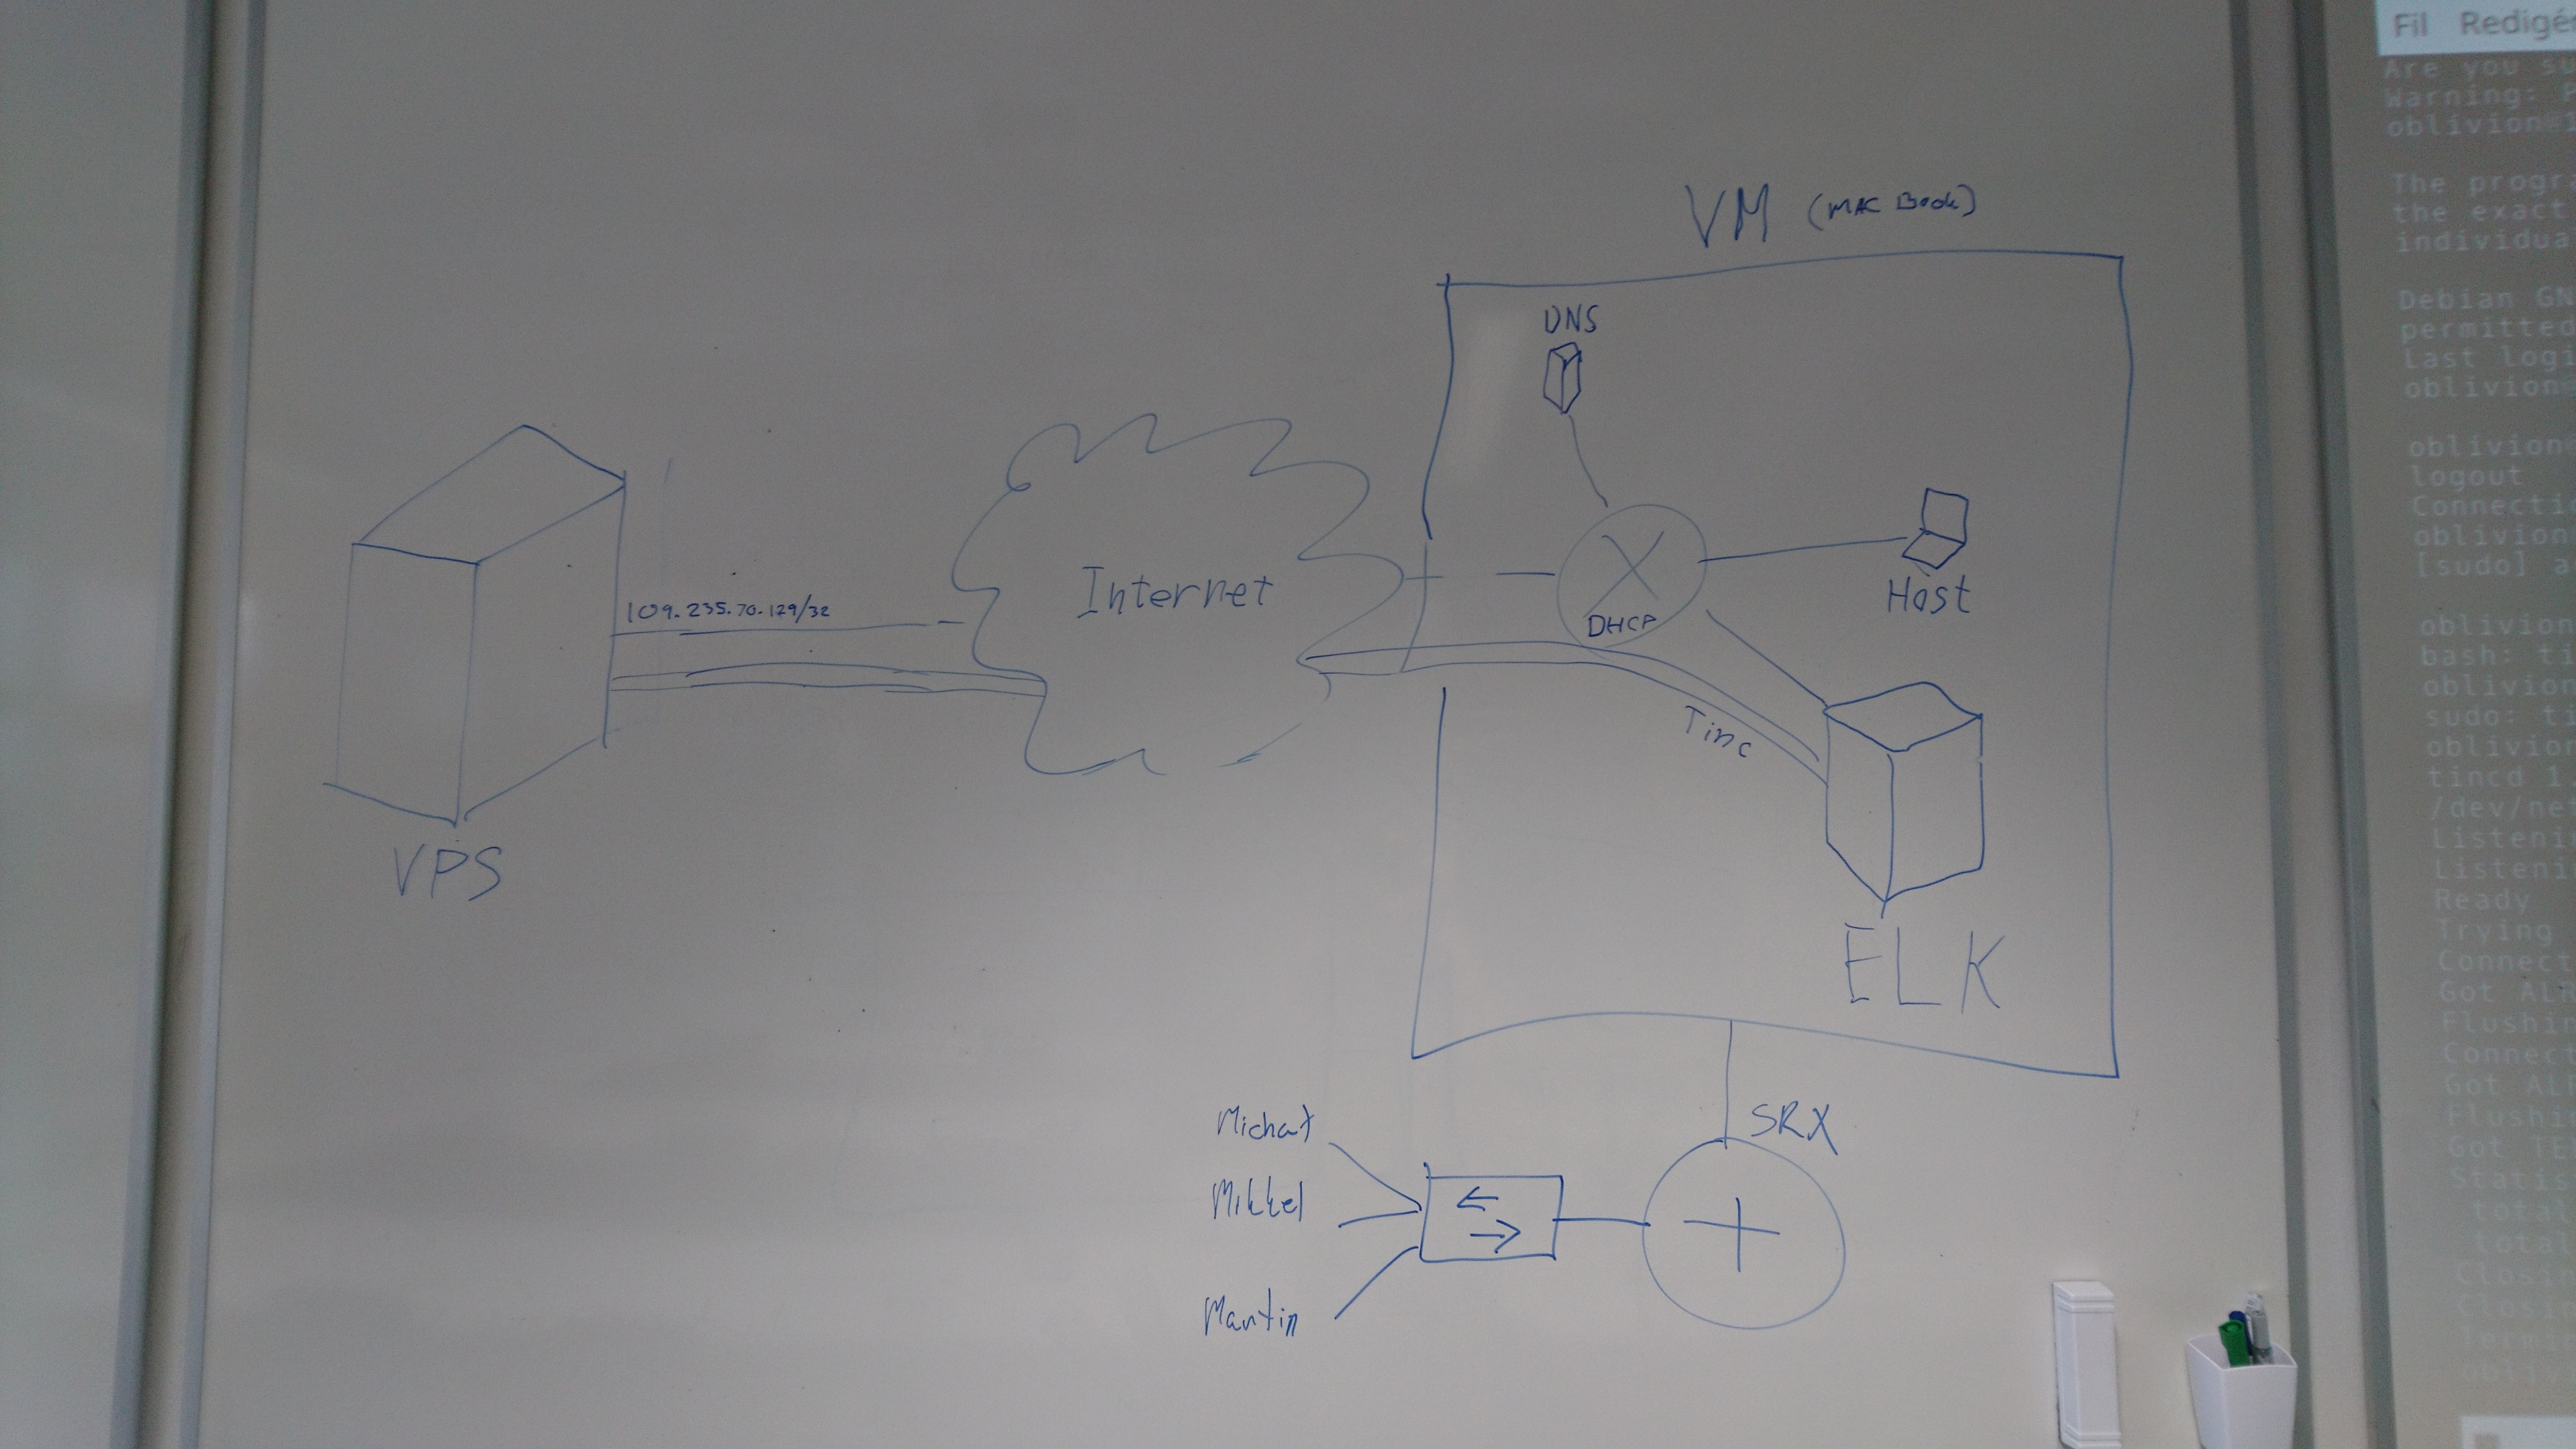 VM (MAC Book)
DNS
Internet
Host
109.235.70.129/32
DHCP
Tinc
VPS
ELK
SRX
Michał
Mikkel
Martin
Fil Redigér
Are you su
Warning: P
oblivion@
The progra
the exact
individua
Debian GN
permitted
Last logi
oblivion
oblivion
logout
Connecti
oblivion
[sudo] a
oblivion
bash: ti
oblivion
sudo: ti
oblivion
tincd 1
/dev/ne
Listeni
Listeni
Ready
Trying
Connect
Got AL
Flushi
Connec
Got AL
Flushi
Got TE
Statis
total
total
Closi
Closi
Termi